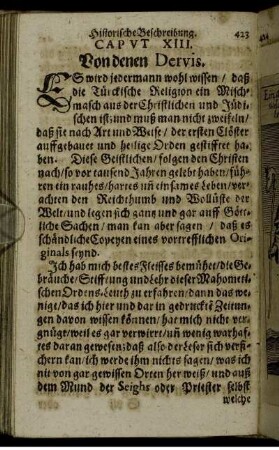 Historische Beschreibung. 423
CAPVT XIII.
Von denen Dervis.
ES wird jedermann wohl wissen / daß
die Türckische Religion ein Misch-
masch aus der Christlichen und Jüdi-
schen ist; und muß man nicht zweifeln/
daß sie nach Art und Weise / der ersten Clöster
auffgebauet und heilige Orden gestifftet ha-
ben. Diese Geistlichen / folgen den Christen
nach/so vor tausend Jahren gelebt haben/füh-
ren ein rauhes/hartes uñ einsames Leben/ver-
achten den Reichthumb und Wollüste der
Welt/und legen sich gantz und gar auff Gött-
liche Sachen / man kan aber sagen / daß es
schändliche Copeyen eines vortrefflichen Ori-
ginals seynd.
Ich hab mich bestes Fleisses bemühet/die Ge-
bräuche/Stifftung und Lehr dieser Mahometi-
schen Ordens-Leuth zu erfahren/dann das we-
nige/das ich hier und dar in gedruckte Zeitun-
gen davon wissen können/hat mich nicht ver-
gnügt/weil es gar verwirrt/uñ wenig warhaf-
tes daran gewesen; daß also der Leser sich versi-
chern kan/ich werde ihm nichts sagen/was ich
nit von gar gewissen Orten her weiß/und auß
dem Mund der Seighs oder Priester selbst
welche